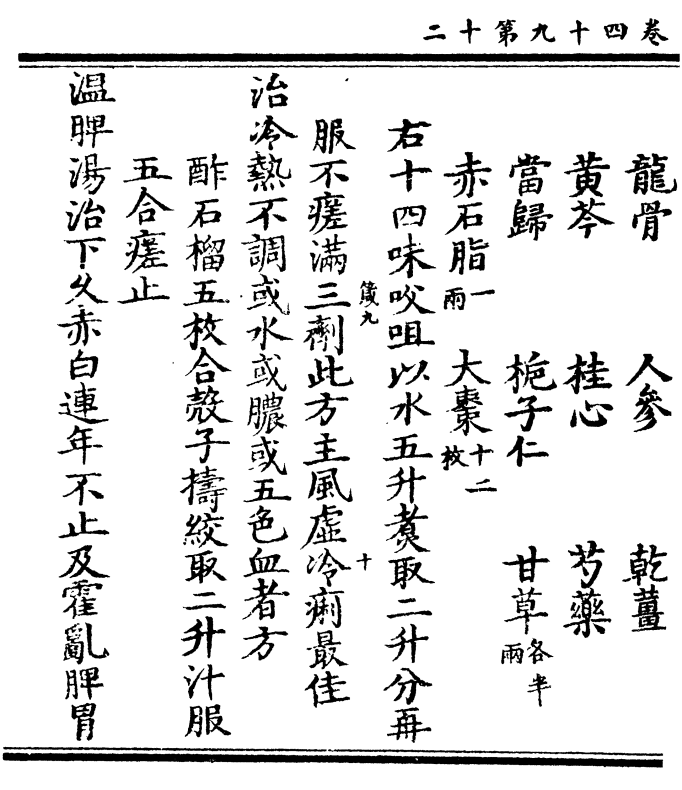 卷四十九第十二
龍骨 人參 乾薑
黄芩 桂心 芍藥
當歸 梔子仁 甘草各半兩
赤石脂一兩 大棗十二枚
右十四味㕮咀以水五升煑取二升分再
服不瘥滿三劑此方主風虛冷痢最佳
治冷熱不調或水或膿或五色血者方
酢石榴五枚合殼子擣絞取二升汁服
五合瘥止
温脾湯治下久赤白連年不止及霍亂脾胃